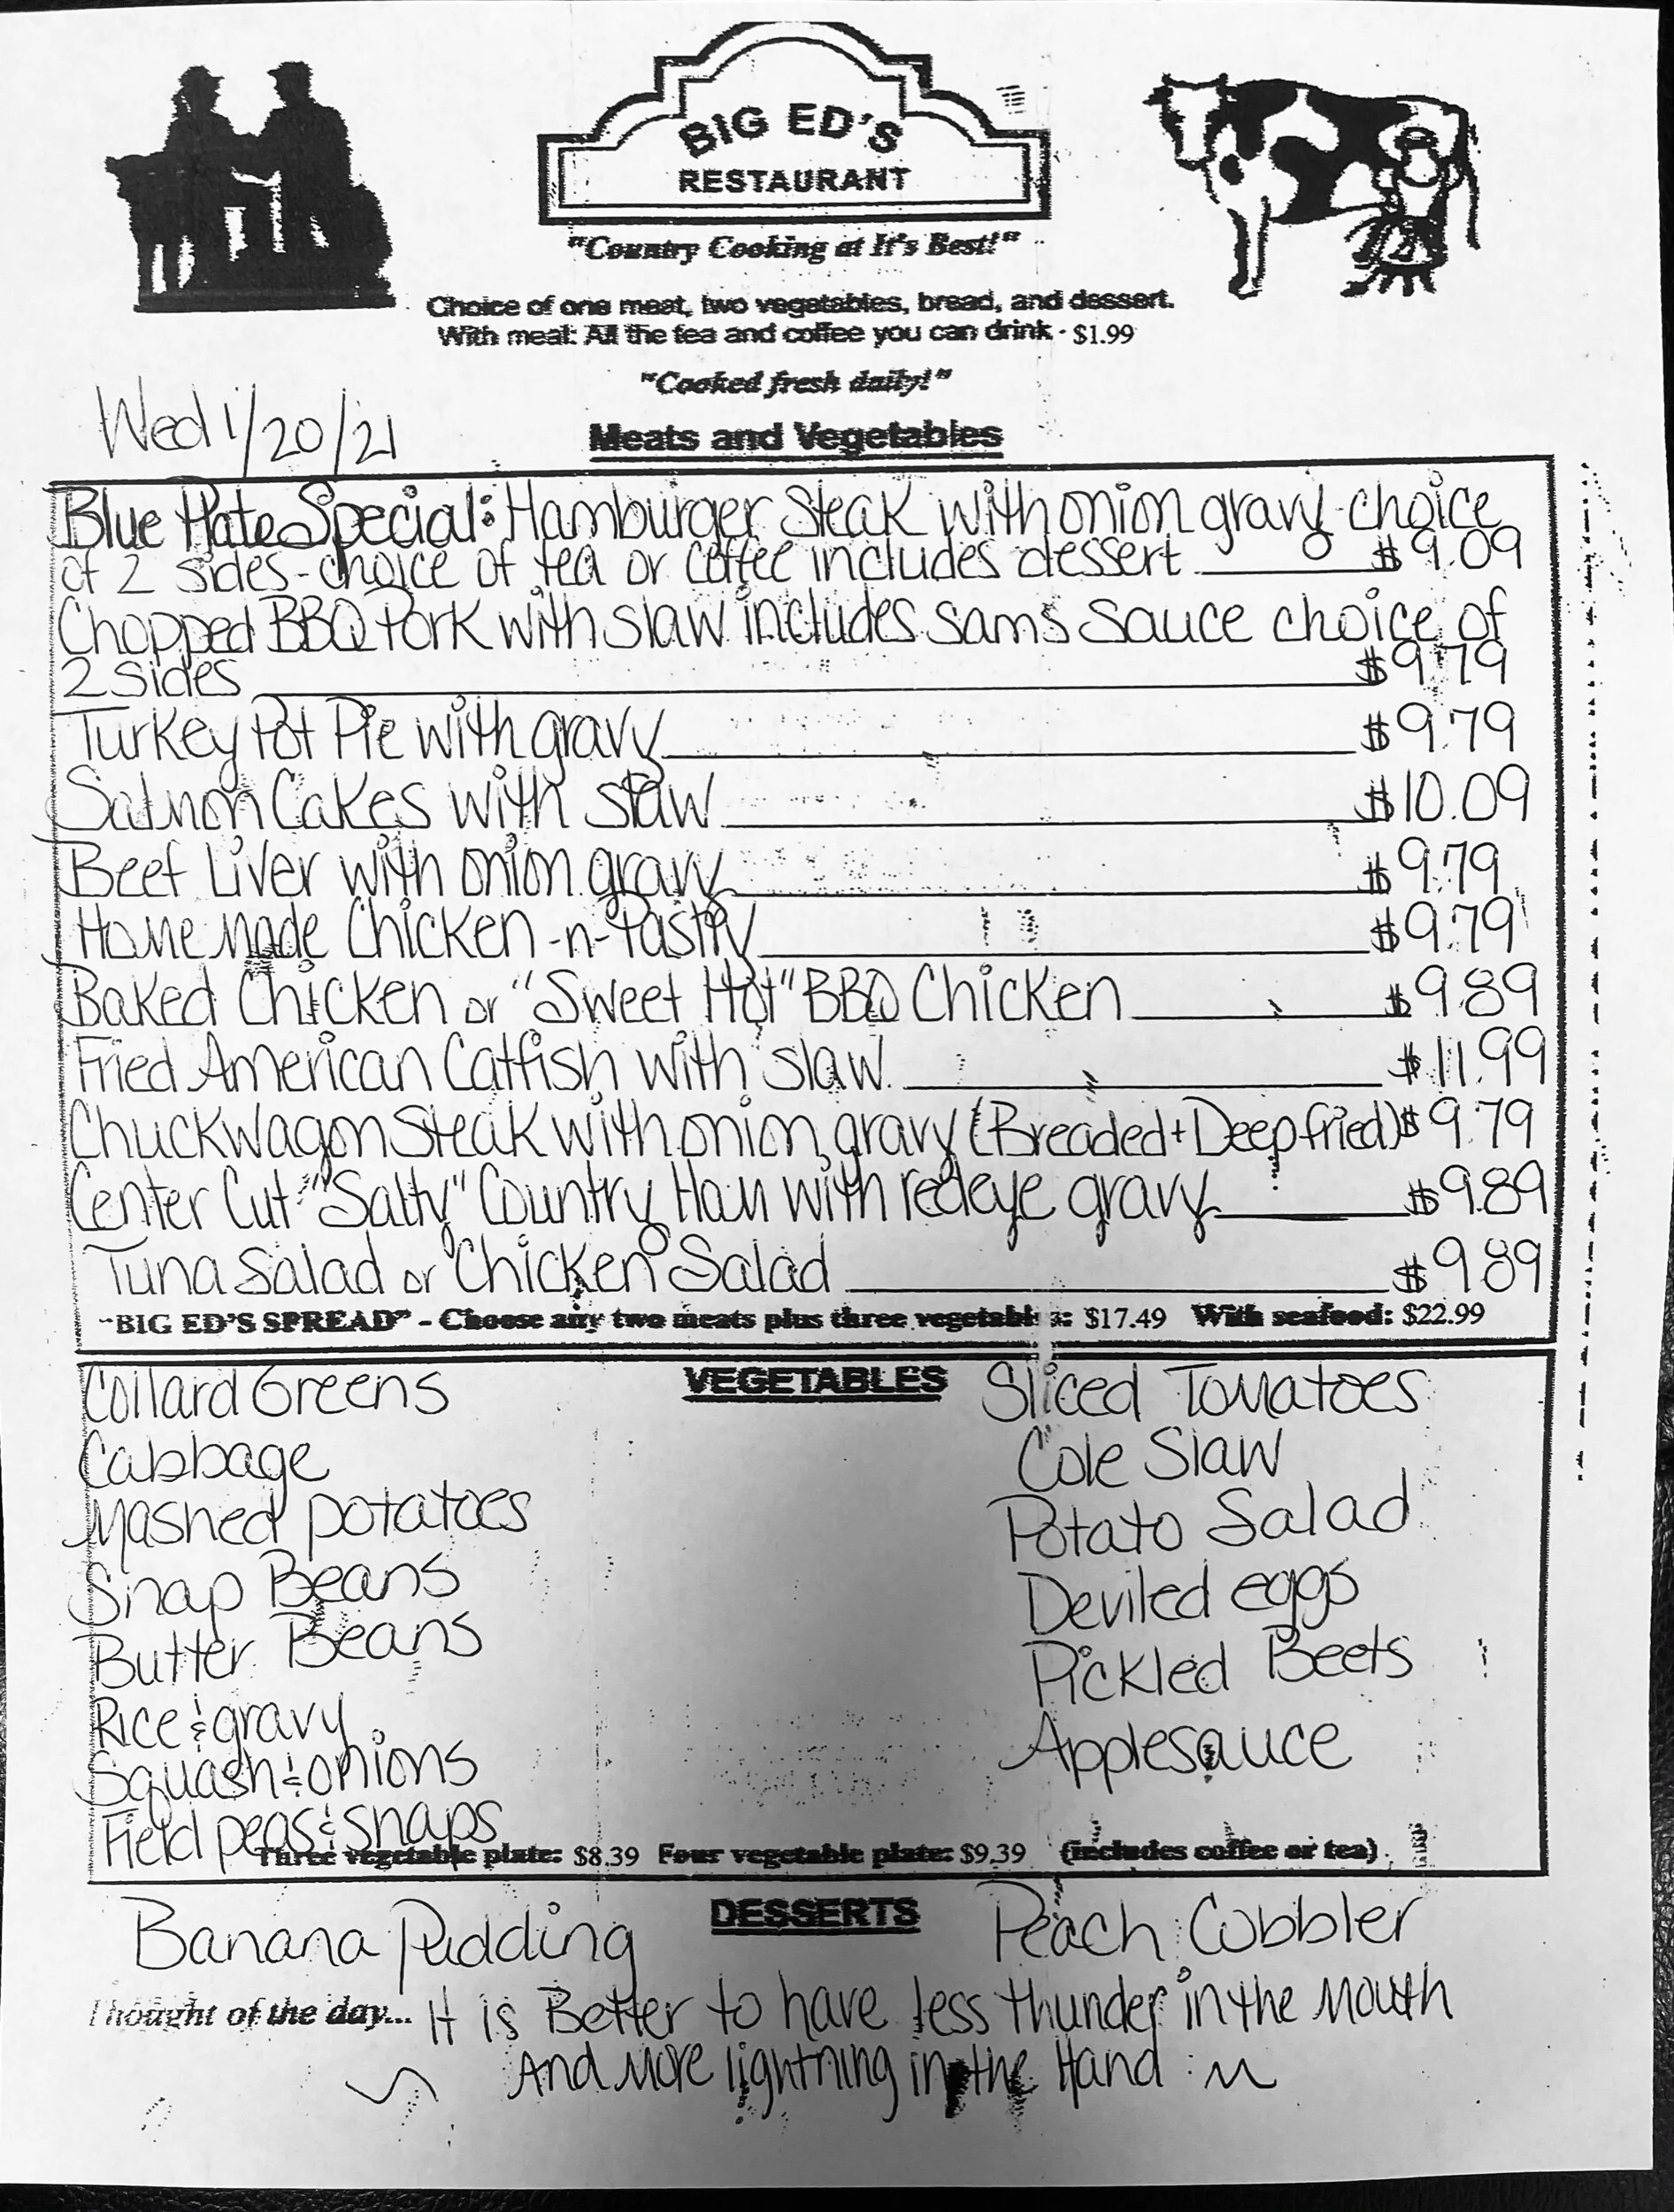 BIG ED'S
RESTAURANT
"Country Cooking at It's Best!"
Choice of one meat, two vegetables, bread, and dessert.
With meal: All the tea and coffee you can drink - $1.99
"Cooked fresh daily!"
Wed 1/20/21
Meats and Vegetables
Blue Plate Special: Hamburger Steak with onion gravy-choice
of 2 sides-choice of tea or coffee includes dessert $9.09
Chopped BBQ Pork with slaw includes sam's sauce choice of
2 sides $9.79
Turkey Pot Pie with gravy $9.79
Salmon Cakes with slaw $10.09
Beef Liver with onion gravy $9.79
Homemade Chicken-n-Pastry $9.79
Baked Chicken or "Sweet Hot" BBQ Chicken $9.89
Fried American Catfish with slaw $11.99
Chuckwagon Steak with onion gravy (Breaded + Deep fried) $9.79
Center Cut "Salty" Country Ham with redeye gravy $9.89
Tuna Salad or Chicken Salad $9.89
"BIG ED'S SPREAD" - Choose any two meats plus three vegetables: $17.49 With seafood: $22.99
VEGETABLES
Collard Greens
Cabbage
Mashed potatoes
Snap Beans
Butter Beans
Rice & gravy
Squash & onions
Field peas & snaps
Sliced Tomatoes
Cole Slaw
Potato Salad
Deviled eggs
Pickled Beets
Applesauce
Three vegetable plate: $8.39 Four vegetable plate: $9.39 (includes coffee or tea)
DESSERTS
Banana Pudding
Peach Cobbler
Thought of the day... It is Better to have less thunder in the Mouth
And More lightning in the Hand